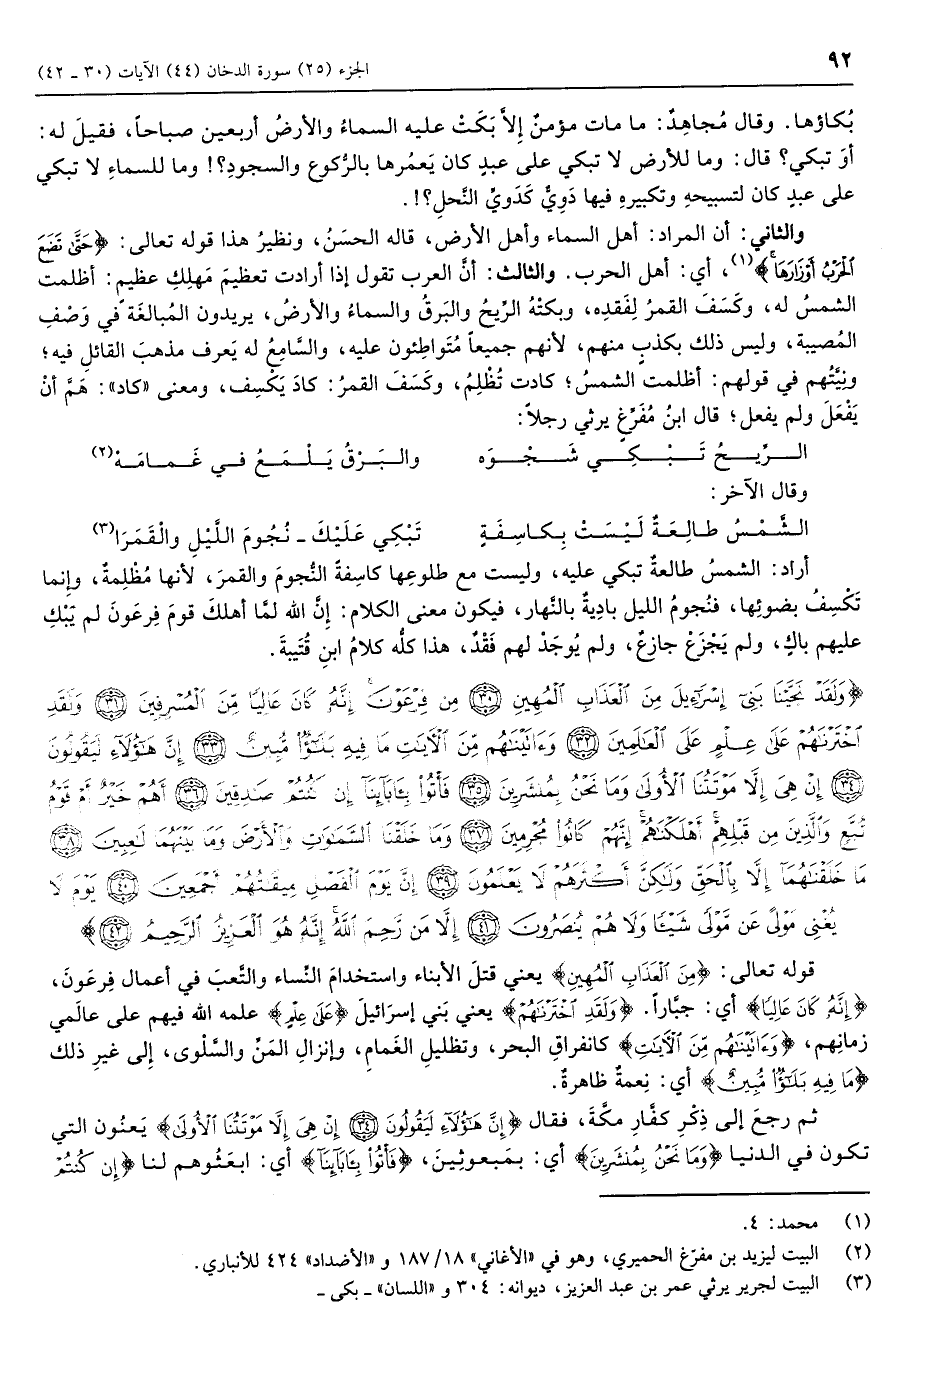 ٩٢
الجزء (٢٥) سورة الدخان (٤٤) الآيات (٣٠ ـ ٤٢)
بُكاؤها. وقال مُجاهِدٌ: ما مات مؤمنٌ إلاَّ بَكَتْ عليه السماءُ والأرضُ أربعين صباحاً، فقيلَ له:
أوَ تبكي؟ قال: وما للأرض لا تبكي على عبدٍ كان يَعمُرها بالرُّكوع والسجودِ؟! وما للسماءِ لا تبكي
على عبدٍ كان لتسبيحهِ وتكبيرهِ فيها دَوِيٌّ كَدَوِيِّ النَّحلِ؟!.
والثاني: أن المراد: أهل السماء وأهل الأرض، قاله الحسَنُ، ونظيرُ هذا قوله تعالى: ﴿حَتَّى تَضَعَ
الْحَرْبُ أَوْزَارَهَا﴾(١)، أي: أهل الحرب. والثالث: أنَّ العرب تقول إذا أرادت تعظيمَ مَهلِكِ عظيمٍ: أظلمت
الشمسُ له، وكَسَفَ القمرُ لِفَقدِه، وبكتْهُ الرِّيحُ والبَرقُ والسماءُ والأرضُ، يريدون المُبالغَةَ في وَصْفِ
المُصيبة، وليس ذلك بكذبٍ منهم، لأنهم جميعاً مُتَواطِئون عليه، والسَّامِعُ له يَعرف مذهبَ القائلِ فيه؛
ونِيَّتُهم في قولهم: أظلمت الشمسُ؛ كادت تُظْلِمُ، وكَسَفَ القمرُ: كادَ يَكْسِف، ومعنى «كاد»: هَمَّ أنْ
يَفْعَلَ ولم يفعل؛ قال ابنُ مُفَرِّغٍ يرثي رجلاً:
الـرِّيـحُ تَـبْـكِـي شَـجْـوَه والـبَـرْقُ يَـلْـمَـعُ فـي غَـمـامَـهْ(٢)
وقال الآخر:
الشَّمْسُ طالِعةٌ لَيْسَتْ بِكاسِفَةٍ تَبْكِي عَلَيْكَ ـ نُجُومَ اللَّيْلِ والْقَمَرَا(٣)
أراد: الشمسُ طالعةٌ تبكي عليه، وليست مع طلوعِها كاسِفةً النُّجومَ والقمرَ، لأنها مُظْلِمةٌ، وإنما
تَكْسِفُ بضوئِها، فنُجومُ الليل بادِيةٌ بالنَّهار، فيكون معنى الكلام: إنَّ الله لمَّا أهلكَ قومَ فِرعَونَ لم يَبْكِ
عليهم باكٍ، ولم يَجْزَعْ جازعٌ، ولم يُوجَدْ لهم فَقْدٌ، هذا كلُّه كلامُ ابنِ قُتَيبةَ.
﴿وَلَقَدْ نَجَّيْنَا بَنِي إِسْرَاءِيلَ مِنَ الْعَذَابِ الْمُهِينِ ۝٣٠ مِن فِرْعَوْنَ إِنَّهُ كَانَ عَالِيًا مِّنَ الْمُسْرِفِينَ ۝٣١ وَلَقَدِ
اخْتَرْنَاهُمْ عَلَى عِلْمٍ عَلَى الْعَالَمِينَ ۝٣٢ وَءَاتَيْنَاهُم مِّنَ الْآيَاتِ مَا فِيهِ بَلَاؤٌا مُّبِينٌ ۝٣٣ إِنَّ هَؤُلَاءِ لَيَقُولُونَ
۝٣٤ إِنْ هِيَ إِلَّا مَوْتَتُنَا الْأُولَى وَمَا نَحْنُ بِمُنشَرِينَ ۝٣٥ فَأْتُوا بِآبَائِنَا إِن كُنتُمْ صَادِقِينَ ۝٣٦ أَهُمْ خَيْرٌ أَمْ قَوْمُ
تُبَّعٍ وَالَّذِينَ مِن قَبْلِهِمْ أَهْلَكْنَاهُمْ إِنَّهُمْ كَانُوا مُجْرِمِينَ ۝٣٧ وَمَا خَلَقْنَا السَّمَاوَاتِ وَالْأَرْضَ وَمَا بَيْنَهُمَا لَاعِبِينَ ۝٣٨
مَا خَلَقْنَاهُمَا إِلَّا بِالْحَقِّ وَلَكِنَّ أَكْثَرَهُمْ لَا يَعْلَمُونَ ۝٣٩ إِنَّ يَوْمَ الْفَصْلِ مِيقَاتُهُمْ أَجْمَعِينَ ۝٤٠ يَوْمَ لَا
يُغْنِي مَوْلًى عَن مَّوْلًى شَيْئًا وَلَا هُمْ يُنصَرُونَ ۝٤١ إِلَّا مَن رَّحِمَ اللَّهُ إِنَّهُ هُوَ الْعَزِيزُ الرَّحِيمُ ۝٤٢﴾
قوله تعالى: ﴿مِنَ الْعَذَابِ الْمُهِينِ﴾ يعني قتلَ الأبناء واستخدامَ النِّساء والتَّعبَ في أعمال فِرعَونَ،
﴿إِنَّهُ كَانَ عَالِيًا﴾ أي: جبَّاراً. ﴿وَلَقَدِ اخْتَرْنَاهُمْ﴾ يعني بَني إسرائيلَ ﴿عَلَى عِلْمٍ﴾ علمه الله فيهم على عالَمي
زمانِهم، ﴿وَءَاتَيْنَاهُم مِّنَ الْآيَاتِ﴾ كانفراقِ البحر، وتظليلِ الغَمامِ، وإنزالِ المَنِّ والسَّلْوى، إلى غيرِ ذلك
﴿مَا فِيهِ بَلَاؤٌا مُّبِينٌ﴾ أي: نِعمةٌ ظاهرةٌ.
ثم رجعَ إلى ذِكْرِ كفَّارِ مكَّةَ، فقال ﴿إِنَّ هَؤُلَاءِ لَيَقُولُونَ ۝٣٤ إِنْ هِيَ إِلَّا مَوْتَتُنَا الْأُولَى﴾ يَعنُون التي
تكون في الدنيا ﴿وَمَا نَحْنُ بِمُنشَرِينَ﴾ أي: بمَبعوثِينَ، ﴿فَأْتُوا بِآبَائِنَا﴾ أي: ابعَثُوهم لنا ﴿إِن كُنتُمْ
(١) محمد: ٤.
(٢) البيت ليزيد بن مفرّغ الحميري، وهو في «الأغاني» ١٨٧/١٨ و «الأضداد» ٤٢٤ للأنباري.
(٣) البيت لجرير يرثي عمر بن عبد العزيز، ديوانه: ٣٠٤ و «اللسان» ـ بكى ـ